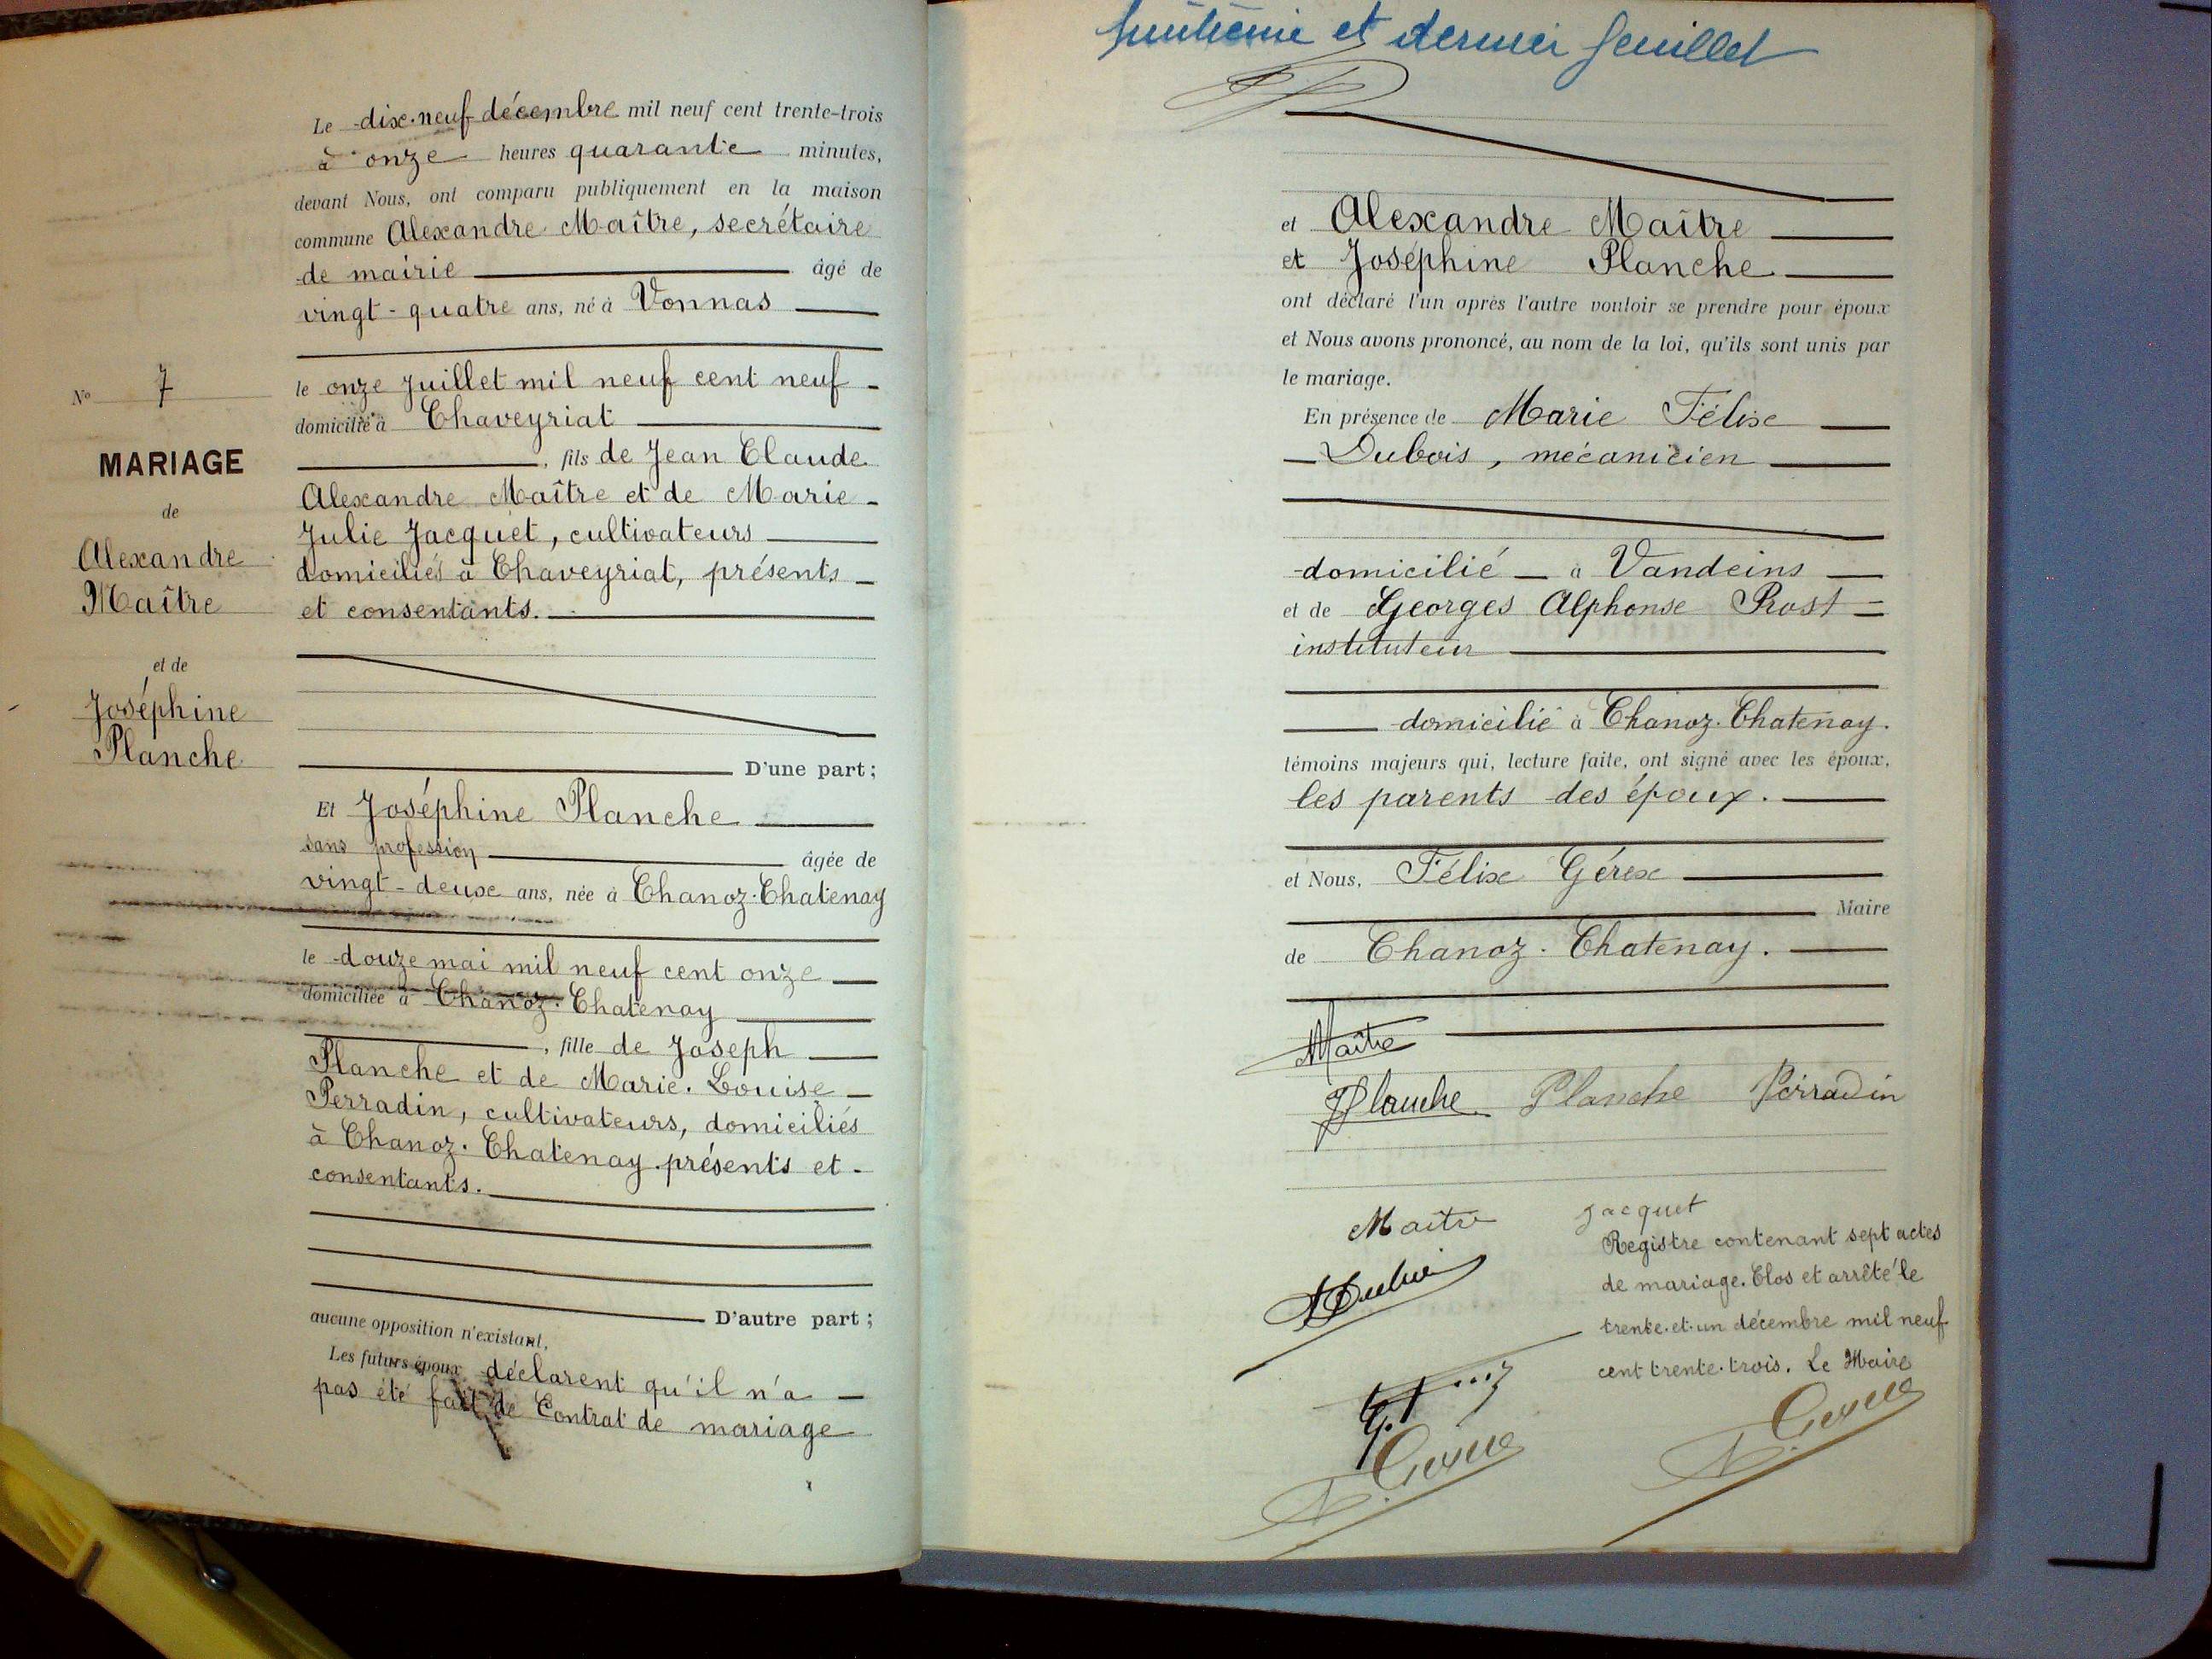 N° 7
MARIAGE
de
Alexandre
Maître
et de
Joséphine
Planche
Le dix-neuf décembre mil neuf cent trente-trois
à onze heures quarante minutes,
devant Nous, ont comparu publiquement en la maison
commune Alexandre Maître, secrétaire
de mairie âgé de
vingt-quatre ans, né à Vonnas
le onze Juillet mil neuf cent neuf
domicilié à Chaveyriat
, fils de Jean Claude
Alexandre Maître et de Marie
Julie Jacquet, cultivateurs
domiciliés à Chaveyriat, présents
et consentants.
D'une part;
Et Joséphine Planche
sans profession âgée de
vingt-deux ans, née à Chanoz-Chatenay
le douze mai mil neuf cent onze
domiciliée à Chanoz-Chatenay
, fille de Joseph
Planche et de Marie-Louise
Perradin, cultivateurs, domiciliés
à Chanoz-Chatenay présents et
consentants.
D'autre part;
aucune opposition n'existant,
Les futurs époux déclarent qu'il n'a
pas été fait de Contrat de mariage
huitième et dernier feuillet
et Alexandre Maître
et Joséphine Planche
ont déclaré l'un après l'autre vouloir se prendre pour époux
et Nous avons prononcé, au nom de la loi, qu'ils sont unis par
le mariage.
En présence de Marie Félix
Dubois, mécanicien
domicilié à Vandeins
et de Georges Alphonse Prost
instituteur
domicilié à Chanoz-Chatenay.
témoins majeurs qui, lecture faite, ont signé avec les époux,
les parents des époux.
et Nous, Félix Gérex
Maire
de Chanoz-Chatenay.
Maître
Planche Planche Perradin
Maitre Jacquet
Registre contenant sept actes
de mariage. Clos et arrêté le
trente-et-un décembre mil neuf
cent trente-trois. Le Maire